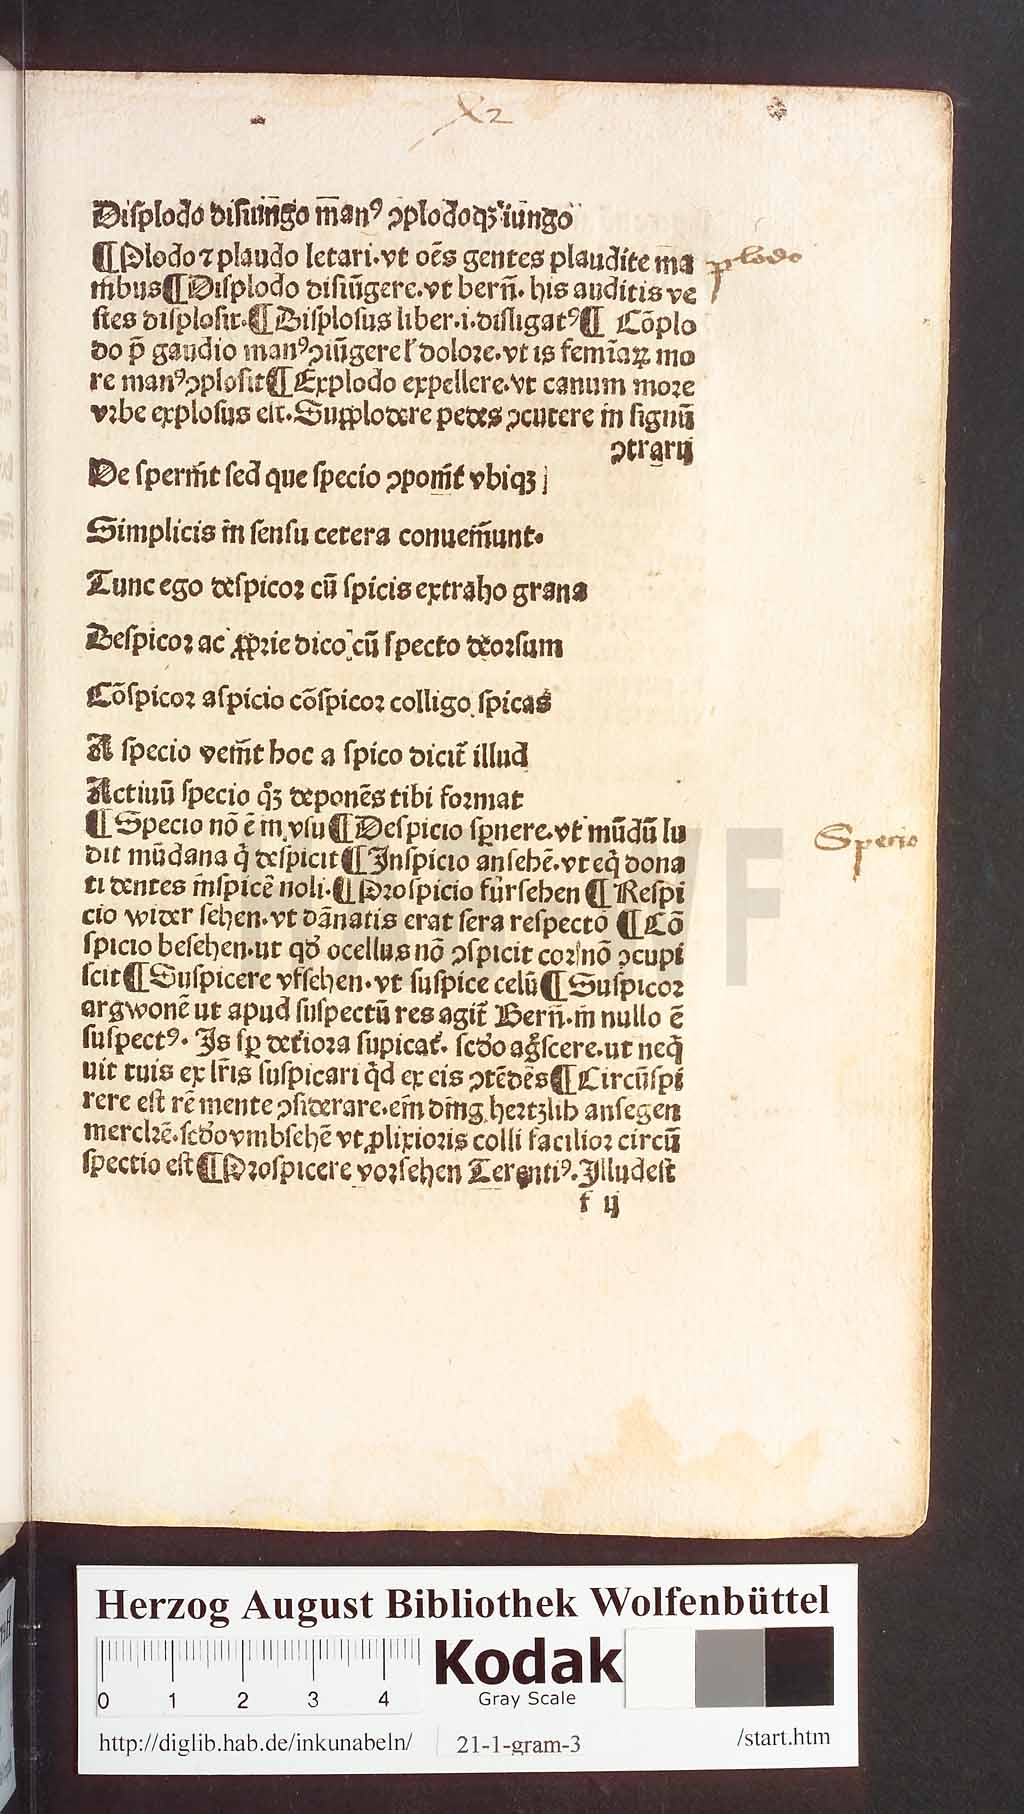 X2
Diſplodo diſiūngo man⁹ ↄplodoqꝫ iūngo
¶Plodo ⁊ plaudo letari. vt oēs gentes plaudite ma
plodo
nibus¶Diſplodo diſiūgere. vt bern̄. his auditis ve
ſtes diſploſit.¶Diſploſus liber .i. diſligat⁹¶ Cōplo
do p̄ gaudio man⁹ ↄiūgere l' dolore. vt is femīaꝝ mo
re man⁹ ↄploſit¶Explodo expellere. vt canum more
vrbe exploſus eſt. Supplodere pedes ↄcutere in ſignū
ↄtrarij
De ſpernit ſed que ſpecio ↄponit vbiqꝫ
Simplicis in ſenſu cetera conueniunt.
Tunc ego deſpicor cū ſpicis extraho grana
Deſpicor ac ꝓprie dico cū ſpecto deorſum
Cōſpicor aſpicio cōſpicor colligo ſpicas
A ſpecio venit hoc a ſpico dicit̄ illud
Actiuū ſpecio qꝫ deponēs tibi format
¶Specio nō ē in vſu¶Deſpicio ſꝑnere. vt mūdū lu
Specio
dit mūdana q̄ deſpicit¶Inſpicio anſehē. vt eq̄ dona
ti dentes inſpicē noli.¶Proſpicio fürſehen ¶Reſpi
cio wider ſehen. vt dānatis erat ſera reſpectō ¶Cō
ſpicio beſehen. ut qd' ocellus nō ↄſpicit cor nō ↄcupi
ſcit¶Suſpicere vfſehen. vt ſuſpice celū¶Suſpicor
argwonē ut apud ſuſpectū res agit̄ Bern̄. in nullo ē
ſuſpect⁹. Is ſꝑ det'iora ſupicat'. ſcdo ag'ſcere. ut neq̄
uit tuis ex lr̄is ſuſpicari q̄d ex eis ↄtēdēs¶Circūſpi
rere eſt rē mente ↄſiderare. ein ding hertzlib anſegen
merckē. ſcdo vmbſehē vt ꝓlixioris colli facilior circū
ſpectio eſt¶Proſpicere vorſehen Terenti⁹. Illud eſt
f ij
Herzog August Bibliothek Wolfenbüttel
0 1 2 3 4
Kodak
Gray Scale
http://diglib.hab.de/inkunabeln/ 21-1-gram-3 /start.htm